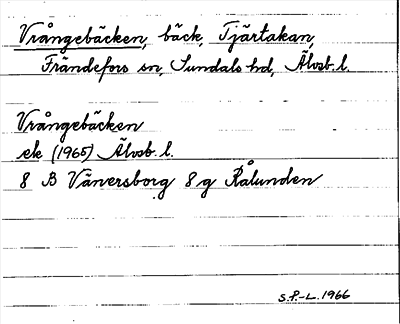 Vrångebäcken, bäck, Tjärtakan,
Frändefors sn, Sundals hd, Älvsb. l.
Vrångebäcken
ek (1965) Älvsb. l.
8 B Vänersborg 8 g Rålunden
S.P.-L. 1966